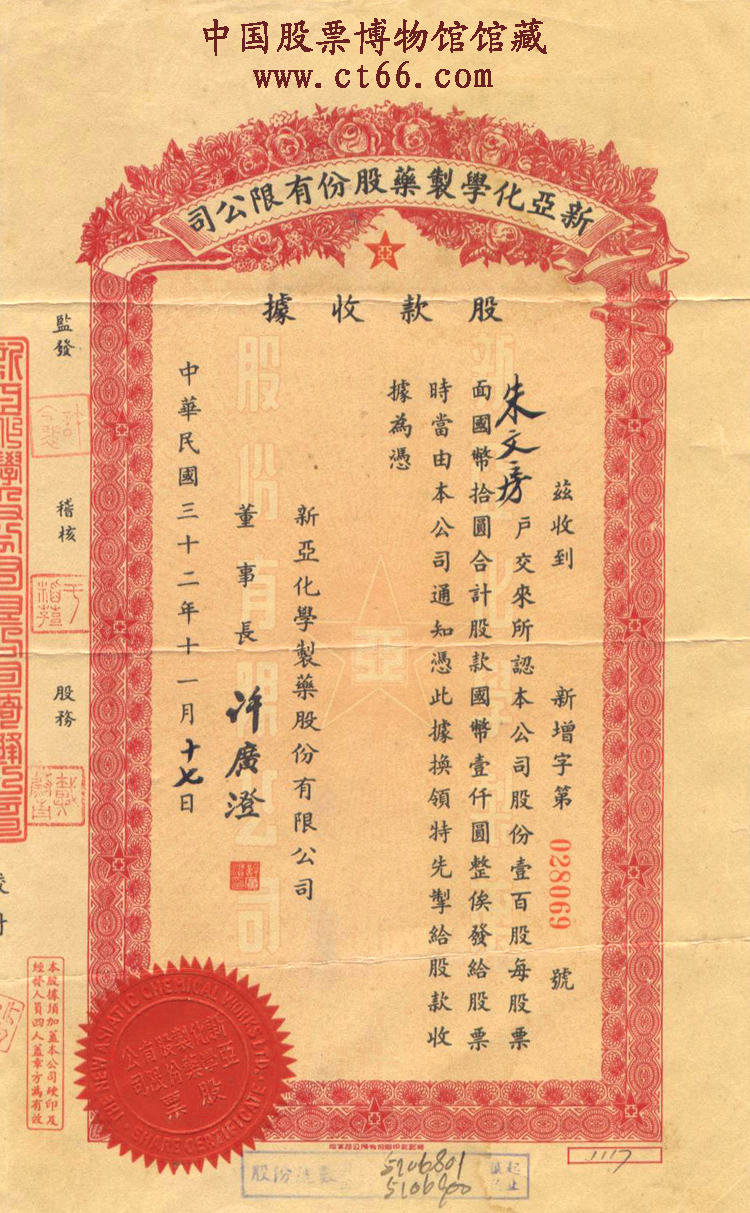 中国股票博物馆馆藏
www.ct66.com
新亞化學製藥股份有限公司
亞
股款收據
茲收到 新增字第028069號
朱文房戶交來所認本公司股份壹百股每股票
面國幣拾圓合計股款國幣壹仟圓整俟發給股票
時當由本公司通知憑此據換領特先掣給股款收
據為憑
新亞化學製藥股份有限公司
董事長 許廣澄
中華民國三十二年十一月十七日
監發
稽核
股務
本股據須加蓋本公司硬印及
經發人員四人蓋章方為有效
THE NEW ASIATIC CHEMICAL WORKS LTD.
新亞化學製藥股份有限公司
股票
SHARE CERTIFICATE
股份 5106801 起
5106900 止
1117